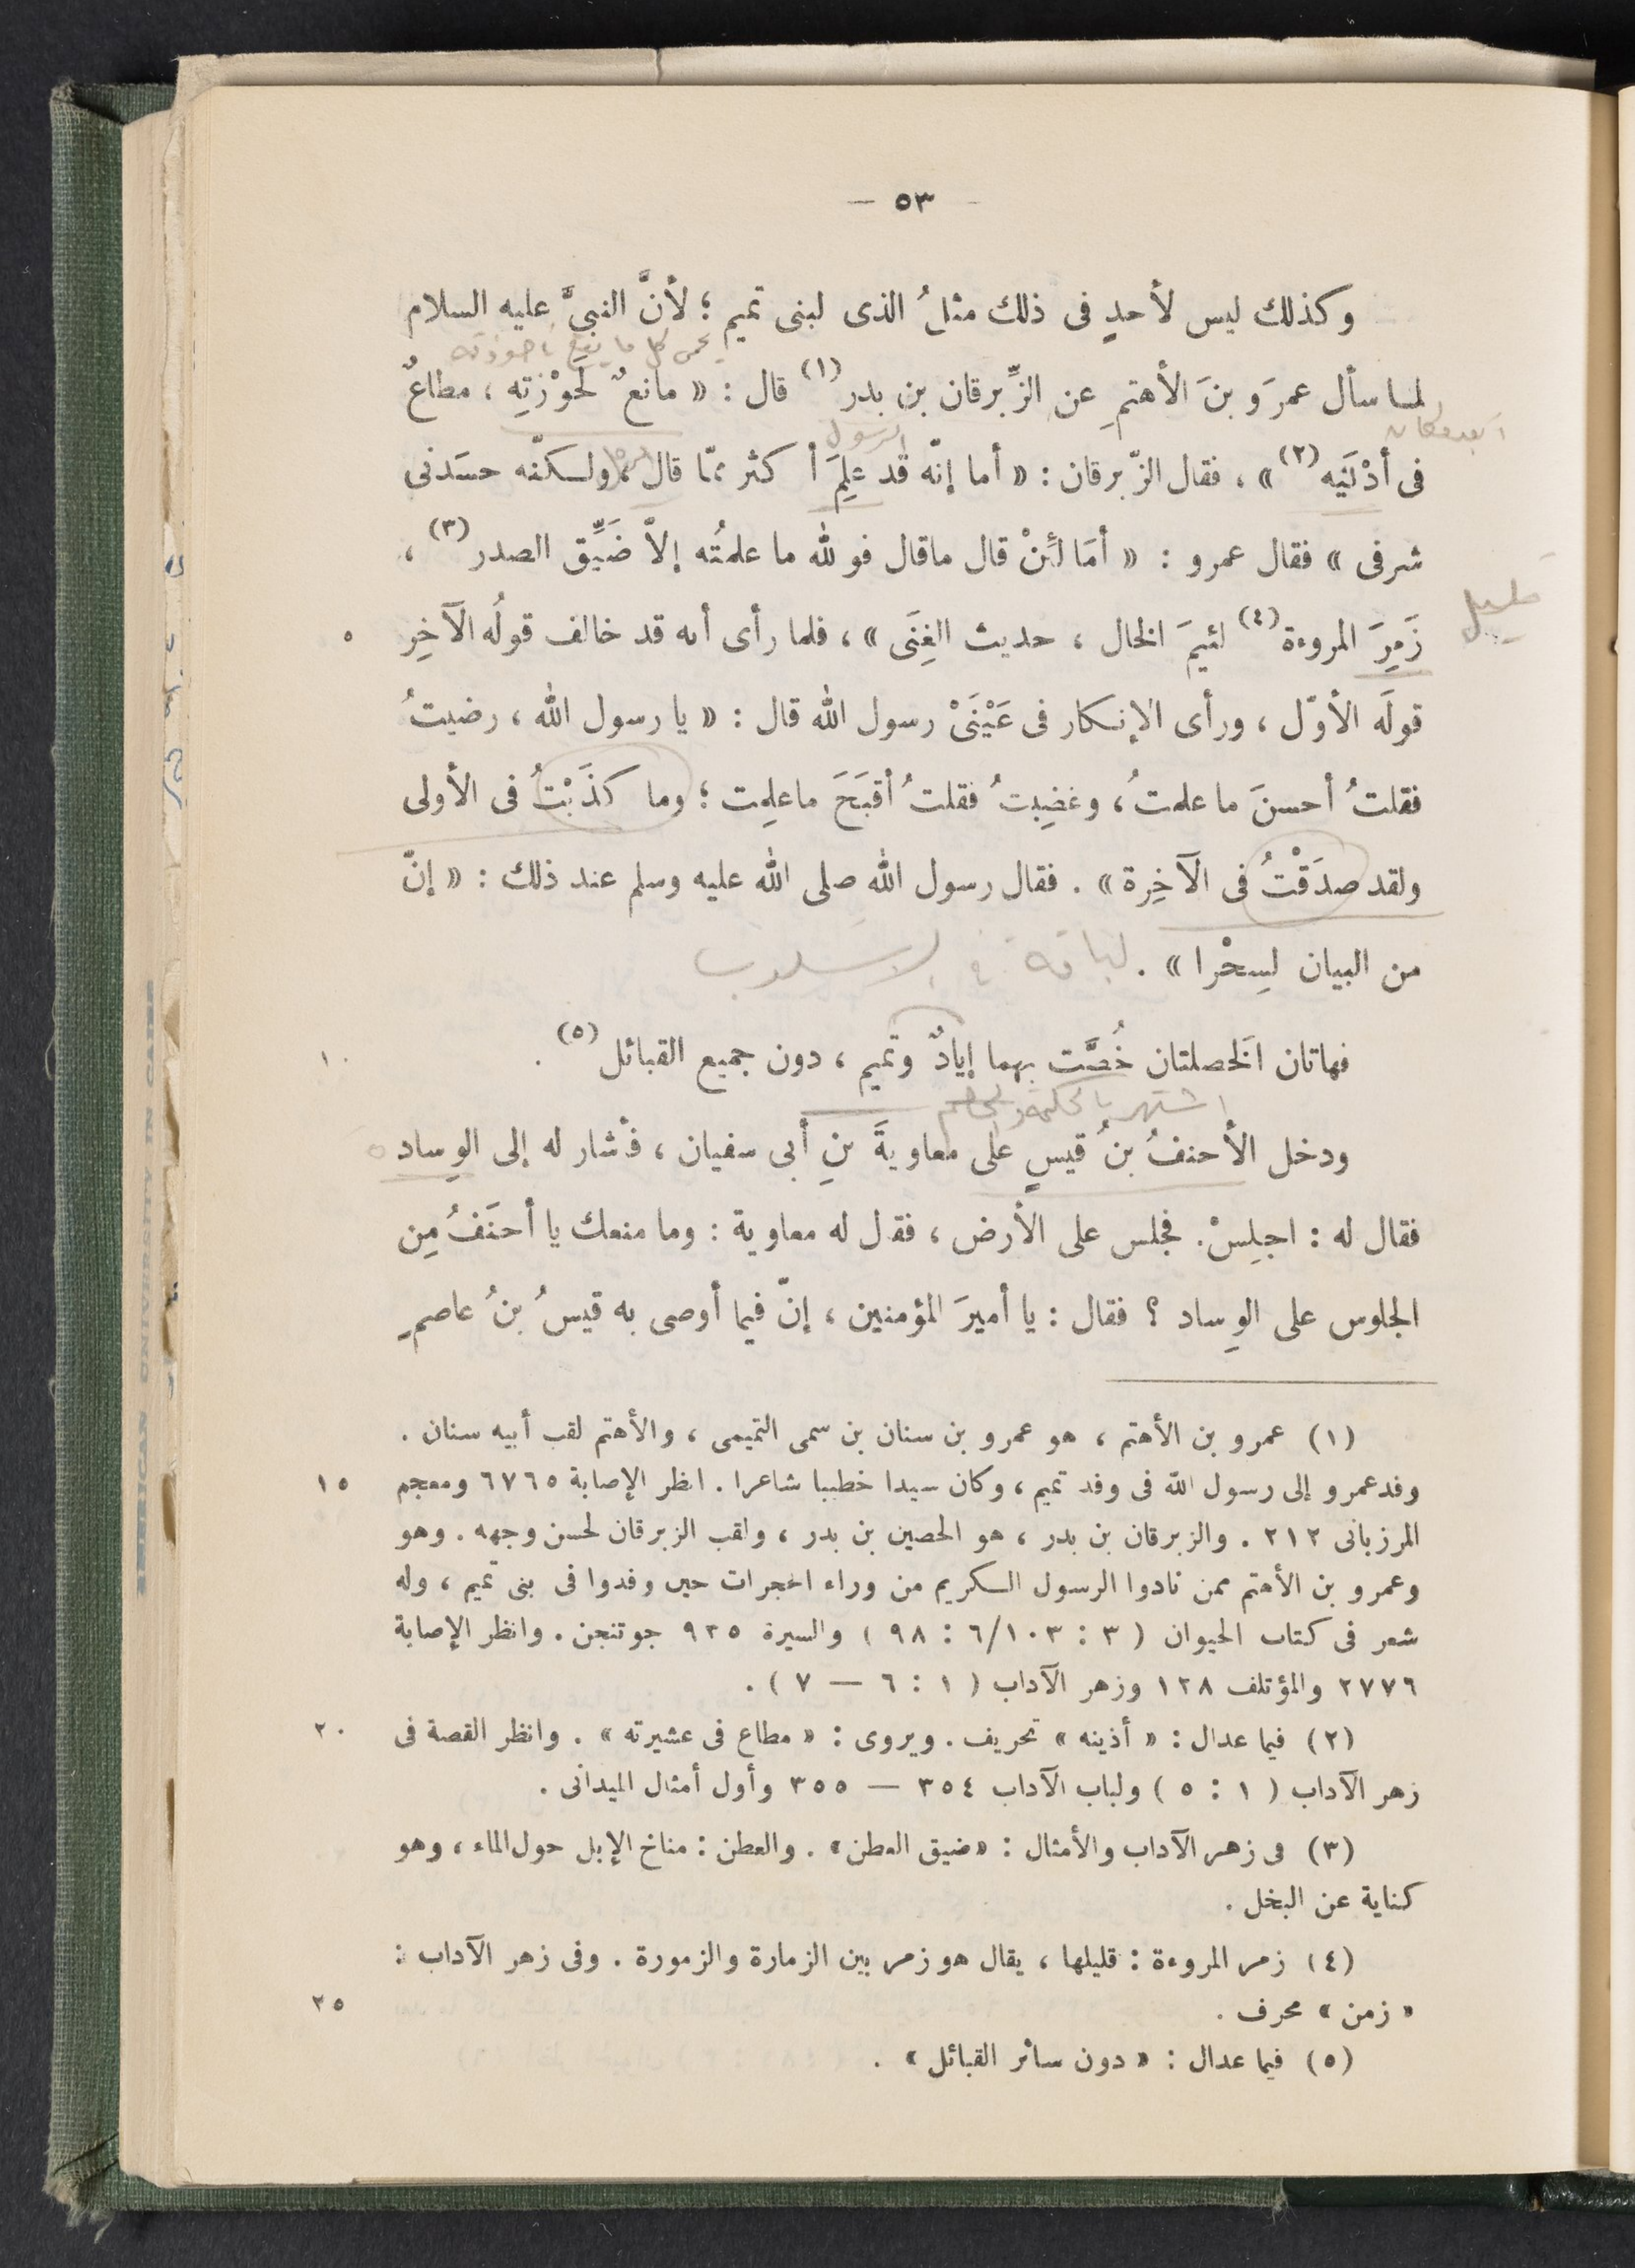 — ٥٣ —
وكذلك ليس لأحدٍ فى ذلك مثلُ الذى لبنى تميم ؛ لأنَّ النبىَّ عليه السلام
يحمى كل ما يقع
لما سأل عمرَو بنَ الأهتمِ عن الزِّبرقان بن بدر (١) قال : « مانعٌ لحَوْزتِه ، مطاعٌ
الرسول
فى أدْنَيْه (٢) » ، فقال الزّبرقان : « أما إنّه قد علِمَ أكثر ممّا قال ، ولـكنّه حسَدنى
شرفى » فقال عمرو : « أمَا لَئِنْ قال ماقال فوالله ما علمتُه إلاّ ضَيِّق الصدر (٣) ،
قليل
زَمِرَ المروءة (٤) لئيمَ الخال ، حديث الغِنَى » ، فلما رأى أنه قد خالف قولُه الآخِر
٥
قولَه الأوّل ، ورأى الإنـكار فى عَيْنَىْ رسول الله قال : « يا رسول الله ، رضيتُ
فقلتُ أحسنَ ما علمتُ ، وغضِبتُ فقلتُ أقبَحَ ماعلِمت ؛ وما كذَبْتُ فى الأولى
ولقد صدَقْتُ فى الآخِرة » . فقال رسول الله صلى الله عليه وسلم عند ذلك : « إنّ
من البيان لسِحْرا » .
لباقة فى الاسلوب
فهاتان الخَصلتان خُصَّت بهما إيادٌ وتميم ، دون جميع القبائل (٥) .
١٠
اشتهر بالحكمة والحلم
ودخل الأحنفُ بنُ قيسٍ على معاويةَ بنِ أبى سفيان ، فأشار له إلى الوِساد
فقال له : اجلِسْ . فجلس على الأرض ، فقال له معاوية : وما منعك يا أحنَفُ مِن
الجلوس على الوِساد ؟ فقال : يا أميرَ المؤمنين ، إنّ فيما أوصى به قيسُ بنُ عاصمٍ
(١) عمرو بن الأهتم ، هو عمرو بن سنان بن سمى التميمى ، والأهتم لقب أبيه سنان .
وفد عمرو إلى رسول الله فى وفد تميم ، وكان سيدا خطيبا شاعرا . انظر الإصابة ٦٧٦٥ ومعجم
١٥
المرزبانى ٢١٢ . والزبرقان بن بدر ، هو الحصين بن بدر ، ولقب الزبرقان لحسن وجهه . وهو
وعمرو بن الأهتم ممن نادوا الرسول الـكريم من وراء الحجرات حين وفدوا فى بنى تميم ، وله
شعر فى كتاب الحيوان ( ٣ : ٦/١٠٣ : ٩٨ ) والسيرة ٩٣٥ جوتنجن . وانظر الإصابة
٢٧٧٦ والمؤتلف ١٢٨ وزهر الآداب ( ١ : ٦ — ٧ ) .
(٢) فيما عدال : « أذينه » تحريف . ويروى : « مطاع فى عشيرته » . وانظر القصة فى
٢٠
زهر الآداب ( ١ : ٥ ) ولباب الآداب ٣٥٤ — ٣٥٥ وأول أمثال الميدانى .
(٣) فى زهر الآداب والأمثال : « ضيق العطن » . والعطن : مناخ الإبل حول الماء ، وهو
كناية عن البخل .
(٤) زمر المروءة : قليلها ، يقال هو زمر بين الزمارة والزمورة . وفى زهر الآداب :
« زمن » محرف .
٢٥
(٥) فيما عدال : « دون سائر القبائل » .